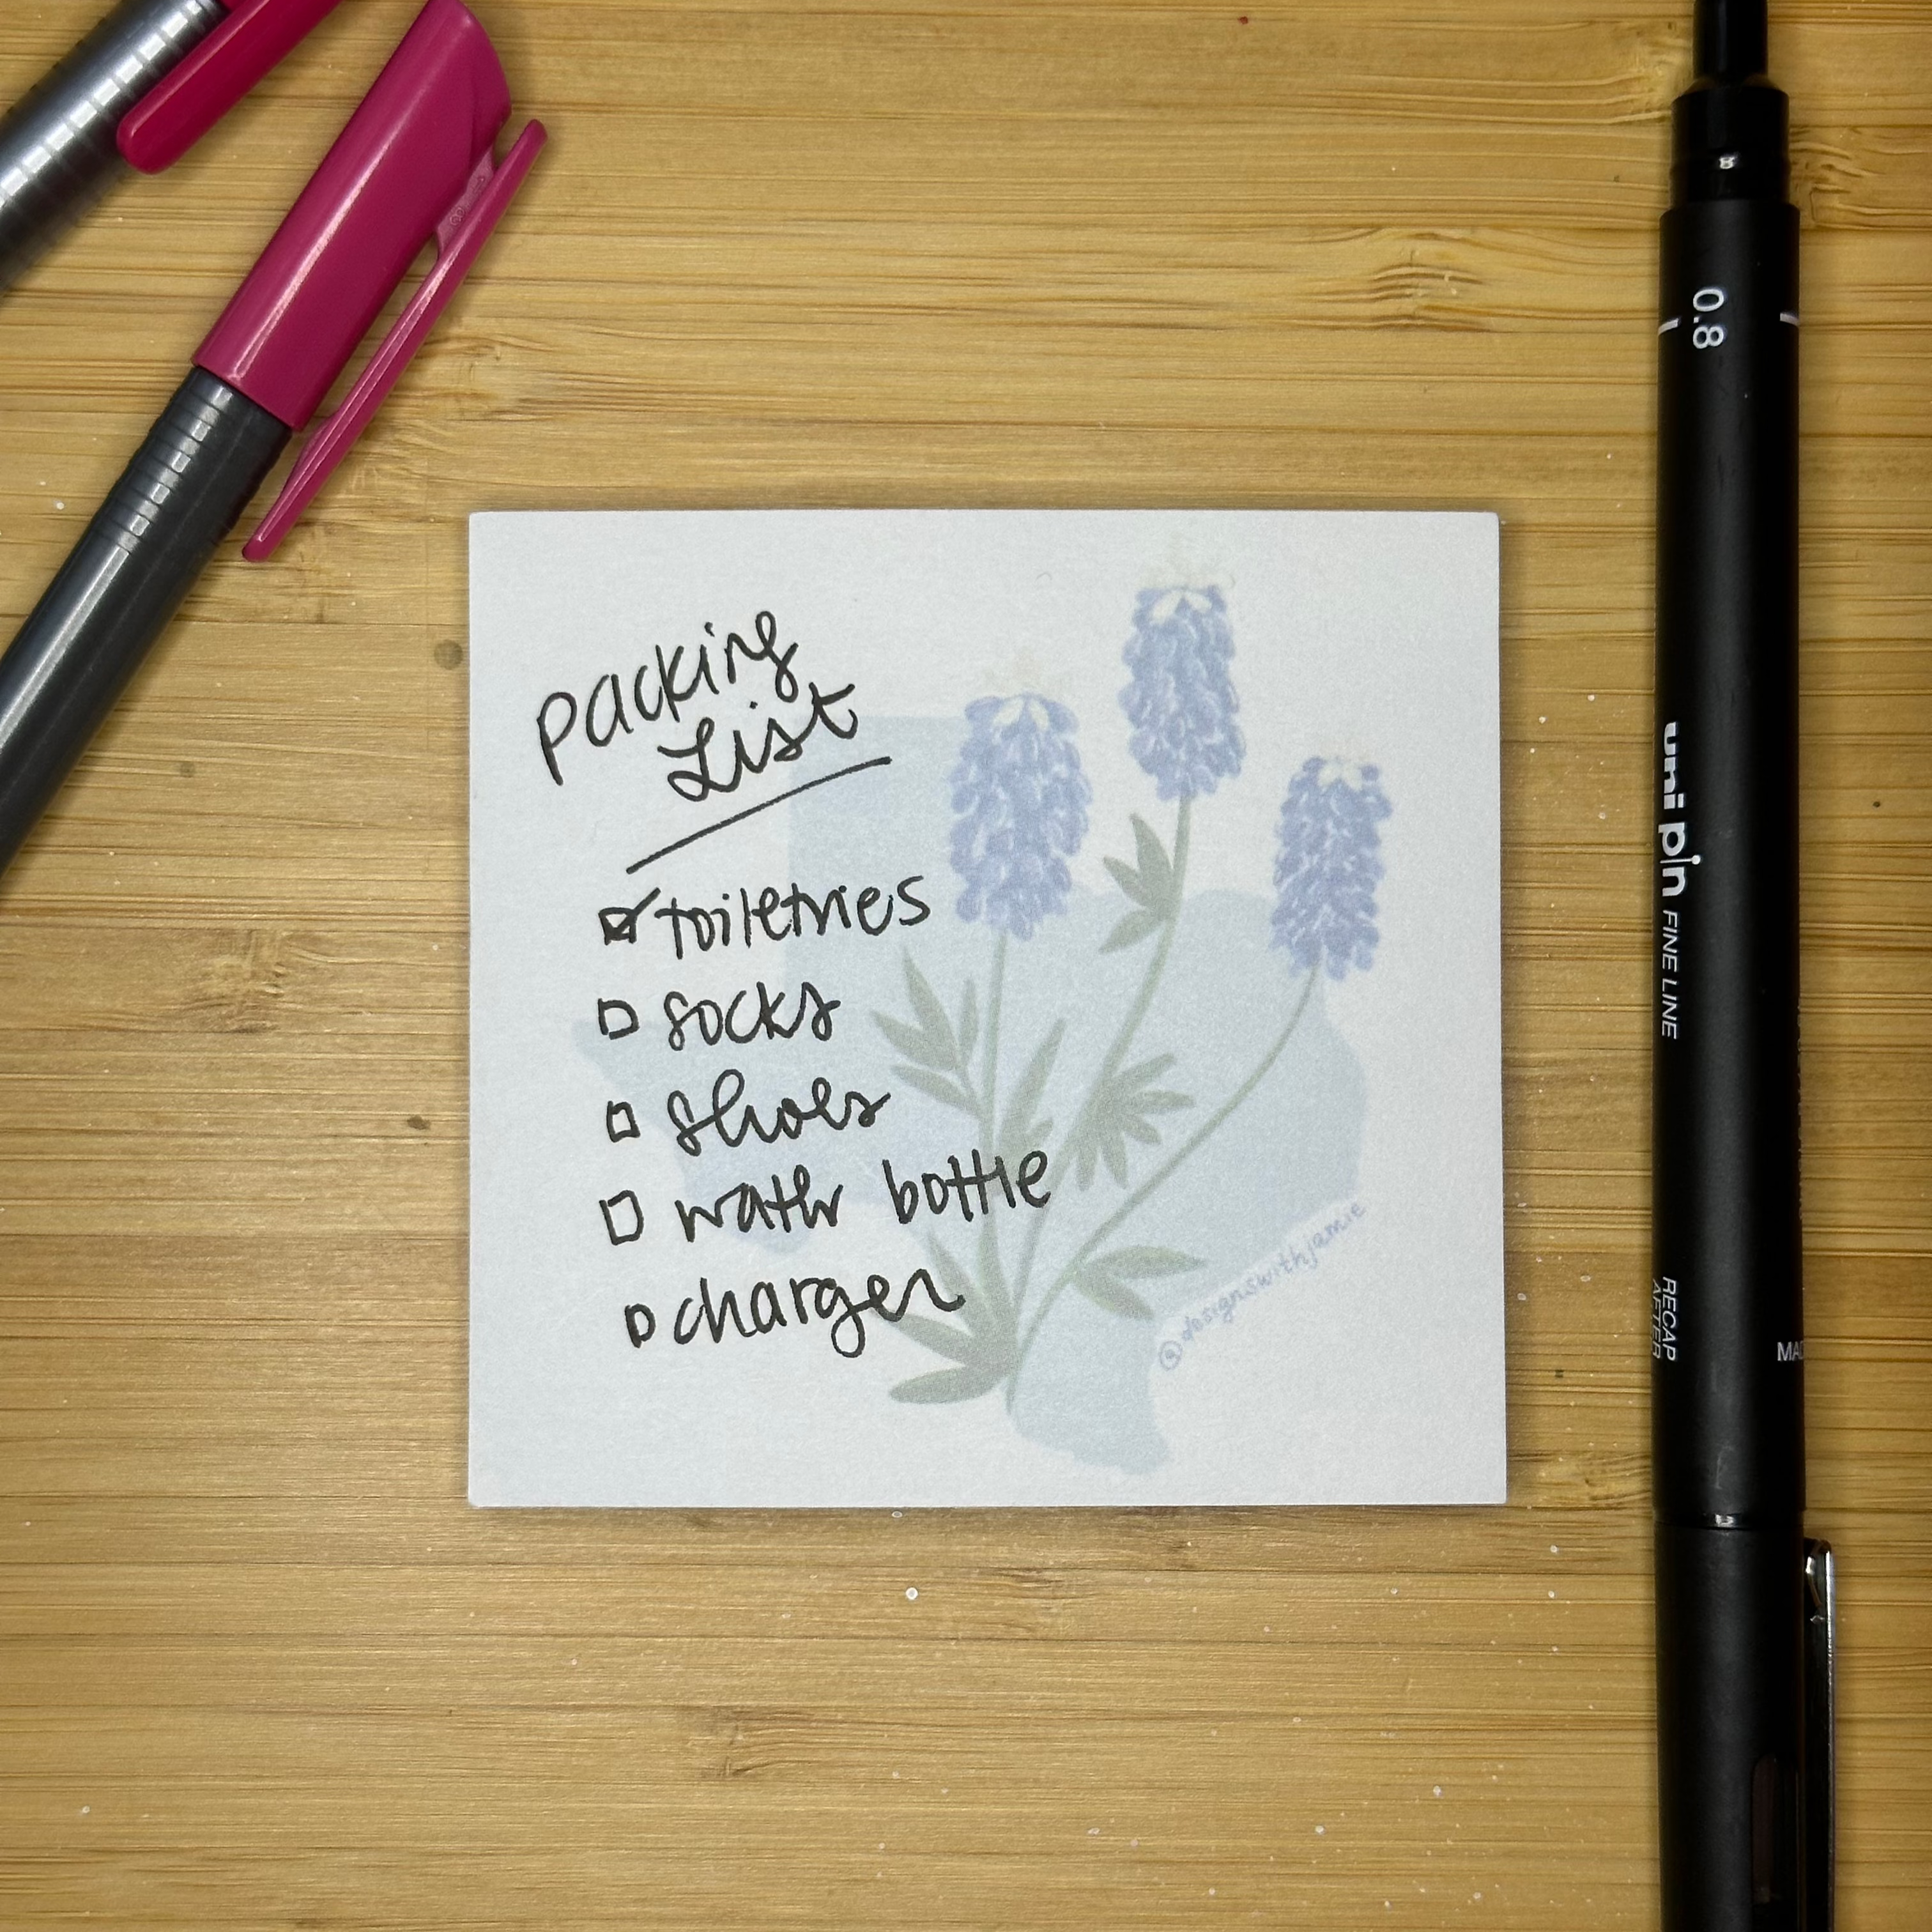 Packing
List
toiletries
socks
shoes
water bottle
charger
@designswithjamie
8
0.8
uni pin FINE LINE
RECAP
AFTER
MAD